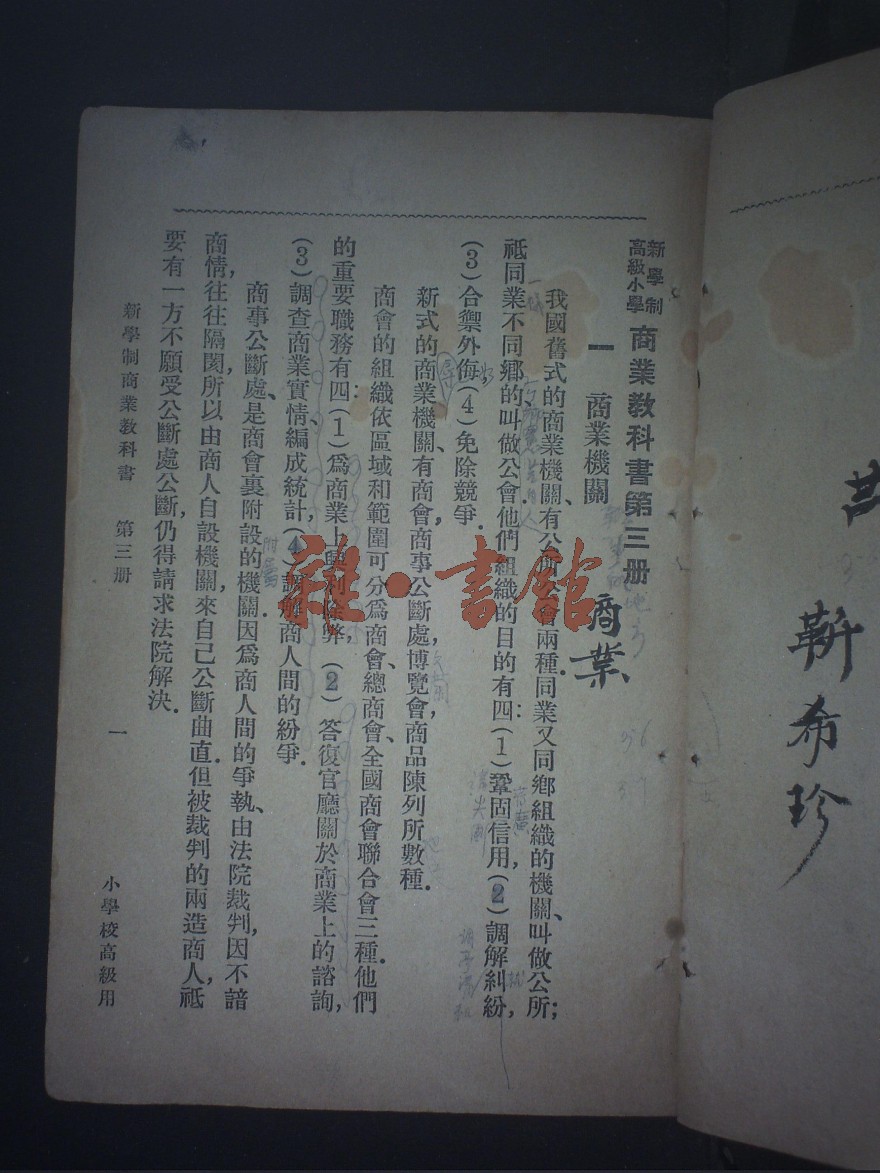 新學制
高級小學
商業教科書第三册
一　商業機關
商業
我國舊式的商業機關、有公所公會兩種．同業又同鄉組織的機關、叫做公所；
祇同業不同鄉的、叫做公會．他們組織的目的有四：(1)鞏固信用，(2)調解糾紛，
(3)合禦外侮，(4)免除競爭．
新式的商業機關、有商會，商事公斷處，博覽會，商品陳列所數種．
商會的組織依區域和範圍可分爲商會、總商會、全國商會聯合會三種．他們
的重要職務有四：(1)爲商業上興利除弊，(2)答復官廳關於商業上的諮詢，
(3)調查商業實情、編成統計，(4)調解商人間的紛爭．
商事公斷處、是商會裏附設的機關．因爲商人間的爭執、由法院裁判，因不諳
商情，往往隔閡，所以由商人自設機關，來自己公斷曲直．但被裁判的兩造商人，祇
要有一方不願受公斷處公斷，仍得請求法院解決．
新學制商業教科書　第三册
一
小學校高級用
靳希珍
雜·書館